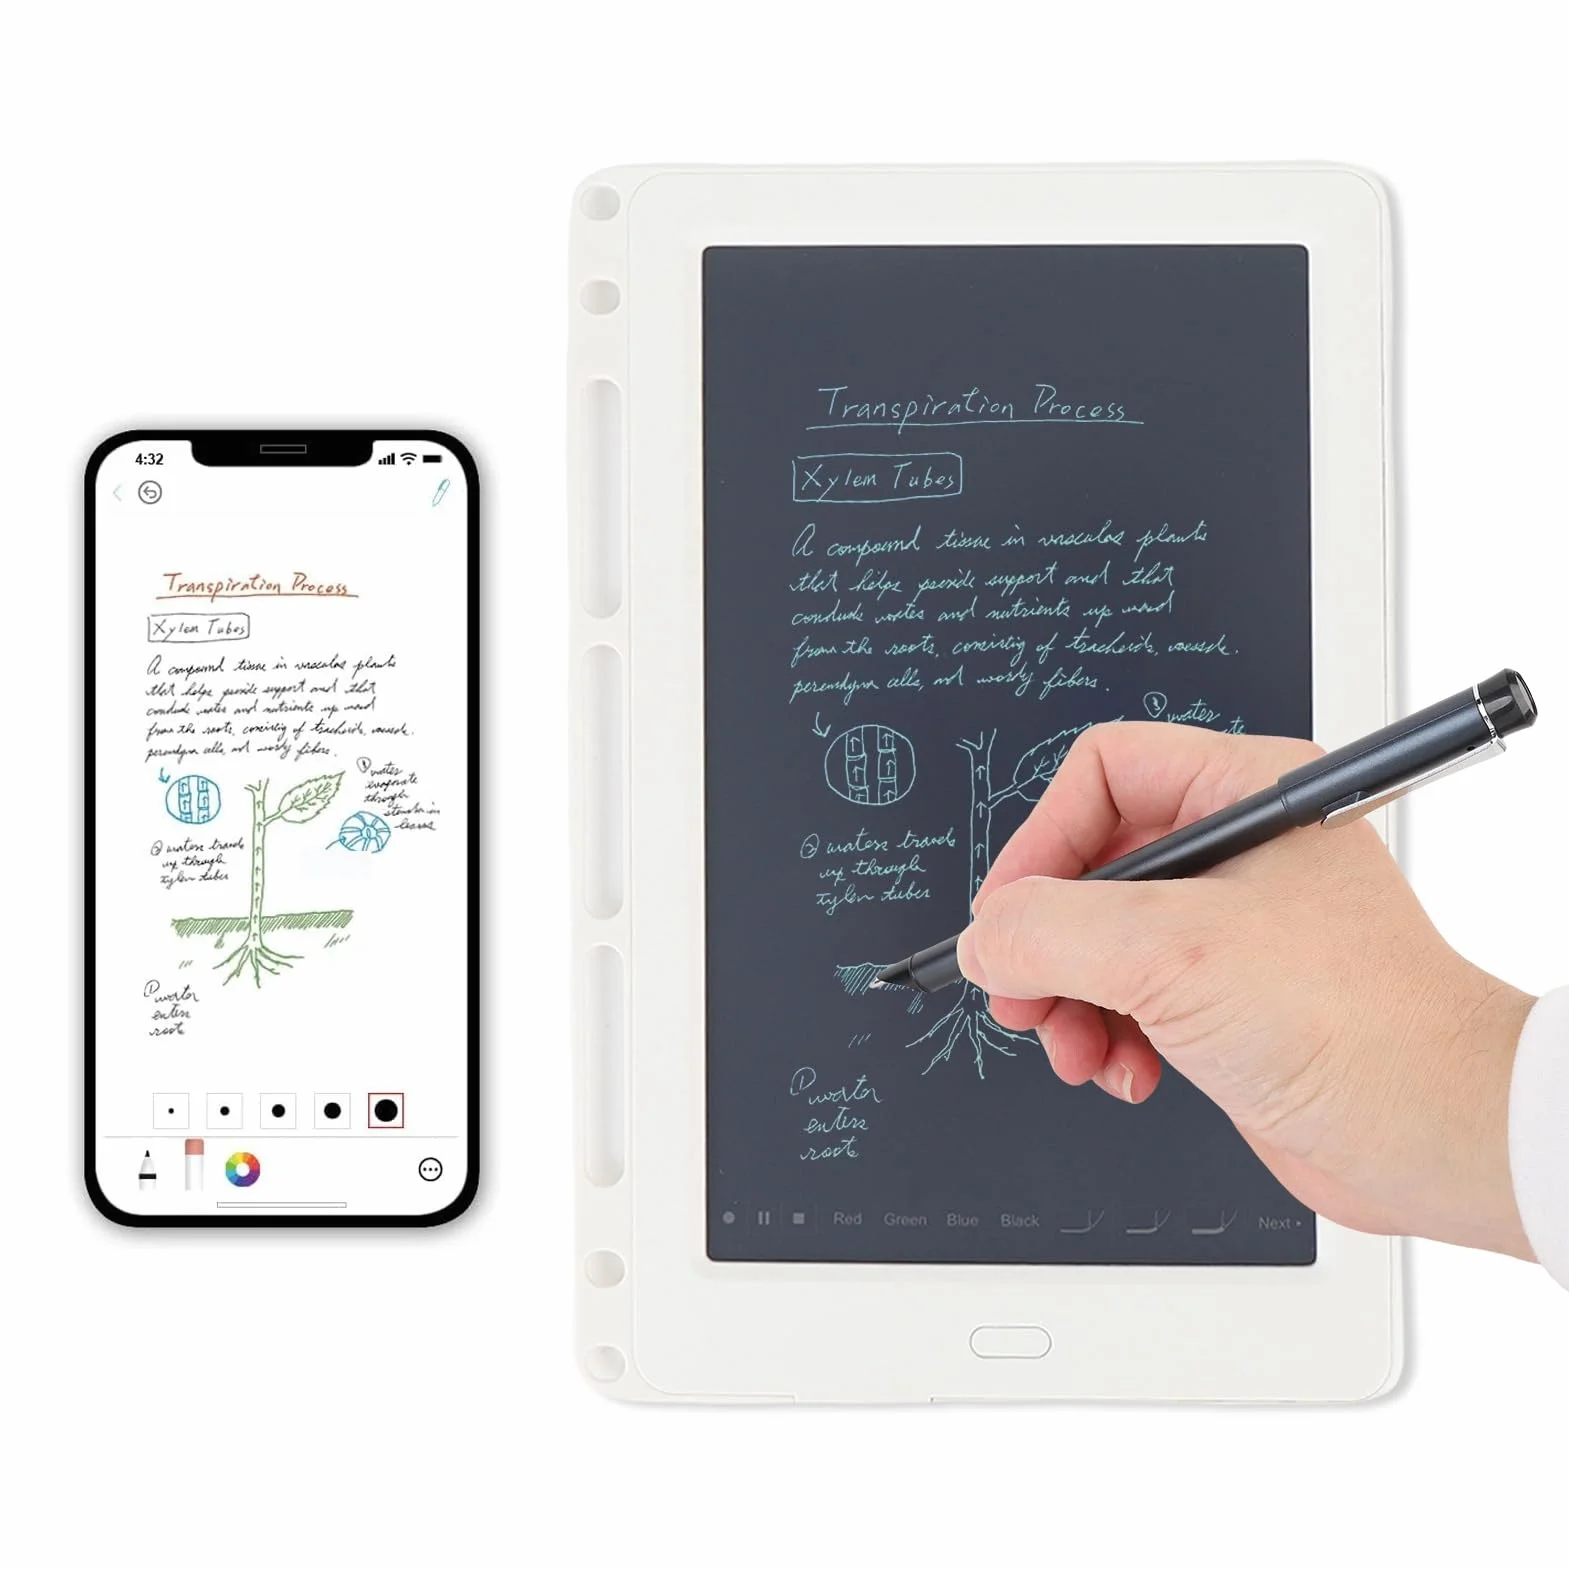 4:32
Transpiration Process
Xylem Tubes
A compound tissue in vascular plants
that helps provide support and that
conducts water and nutrients up ward
from the roots, consisting of tracheids, vessels.
parenchyma cells, and woody fibers.
3 water
evaporate
through
stomata in
leaves
2 waters travels
up through
xylem tubes
1 water
enters
root
Transpiration Process
Xylem Tubes
A compound tissue in vascular plants
that helps provide support and that
conducts water and nutrients up ward
from the roots, consisting of tracheids, vessels.
parenchyma cells, and woody fibers.
3 water
2 waters travels
up through
xylem tubes
1 water
enters
root
Red Green Blue Black Next